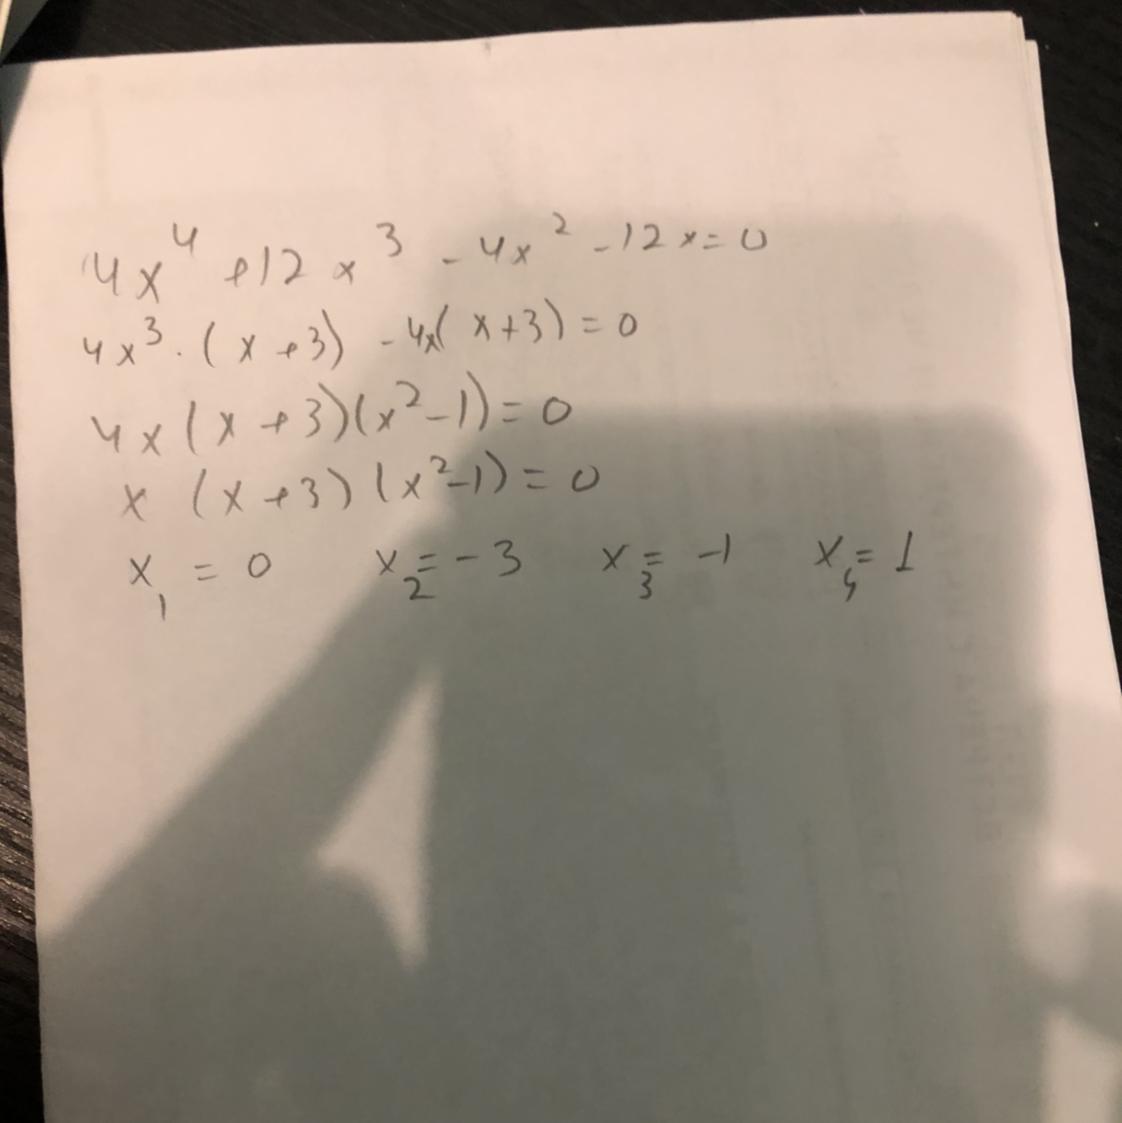 4x⁴ + 12x³ - 4x² - 12x = 0
4x³ · (x + 3) - 4x(x + 3) = 0
4x(x + 3)(x² - 1) = 0
x (x + 3)(x² - 1) = 0
x₁ = 0 x₂ = -3 x₃ = -1 x₄ = 1